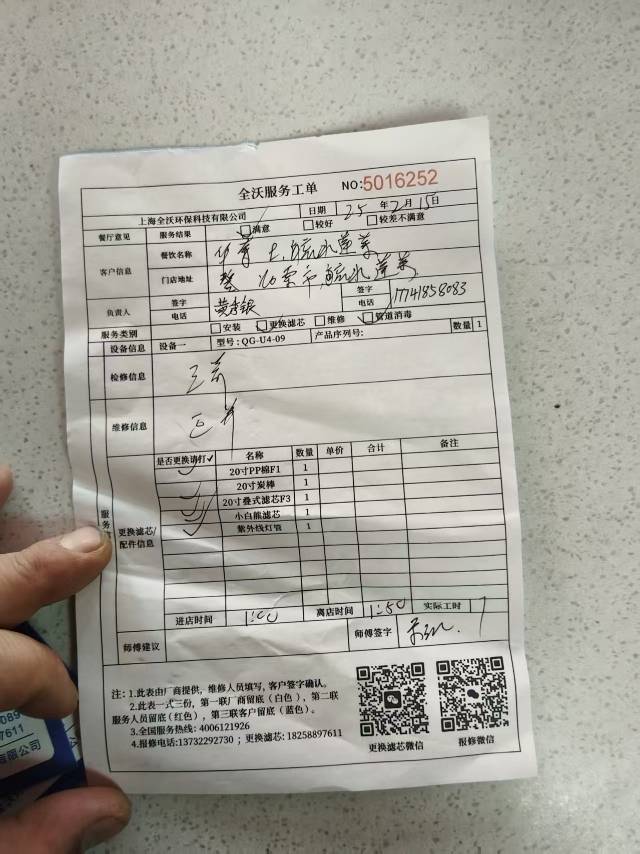 全沃服务工单 NO:5016252
上海全沃环保科技有限公司 日期 25 年 2 月 15 日
餐厅意见 服务结果 满意 较好 较差不满意
客户信息 餐饮名称
门店地址
负责人 签字 电话 签字 电话 17741858083
服务类别 安装 更换滤芯 维修 管道消毒
设备信息 设备一 型号:QG-U4-09 产品序列号: 数量 1
检修信息
维修信息
是否更换请打✓ 名称 数量 单价 合计 备注
20寸PP棉F1 1
20寸炭棒 1
20寸叠式滤芯F3 1
小白熊滤芯 1
紫外线灯管 1
更换滤芯/
配件信息
进店时间 1:00 离店时间 1:50 实际工时 1
师傅建议 师傅签字
注:1.此表由厂商提供,维修人员填写,客户签字确认。
2.此表一式三份,第一联厂商留底(白色),第二联
服务人员留底(红色),第三联客户留底(蓝色)。
3.全国服务热线: 4006121926
4.报修电话:13732292730 ; 更换滤芯: 18258897611
更换滤芯微信 报修微信
7611
限公司